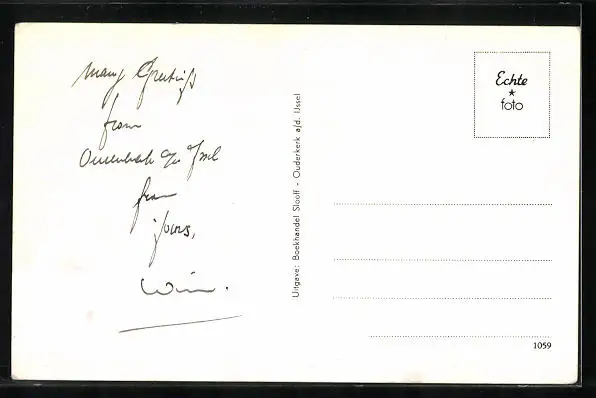 Many Greetings
from
Ouderkerk a/d IJssel
from
yours,
Wim.
Uitgave: Boekhandel Slooff - Ouderkerk a/d. IJssel
Echte
*
foto
1059